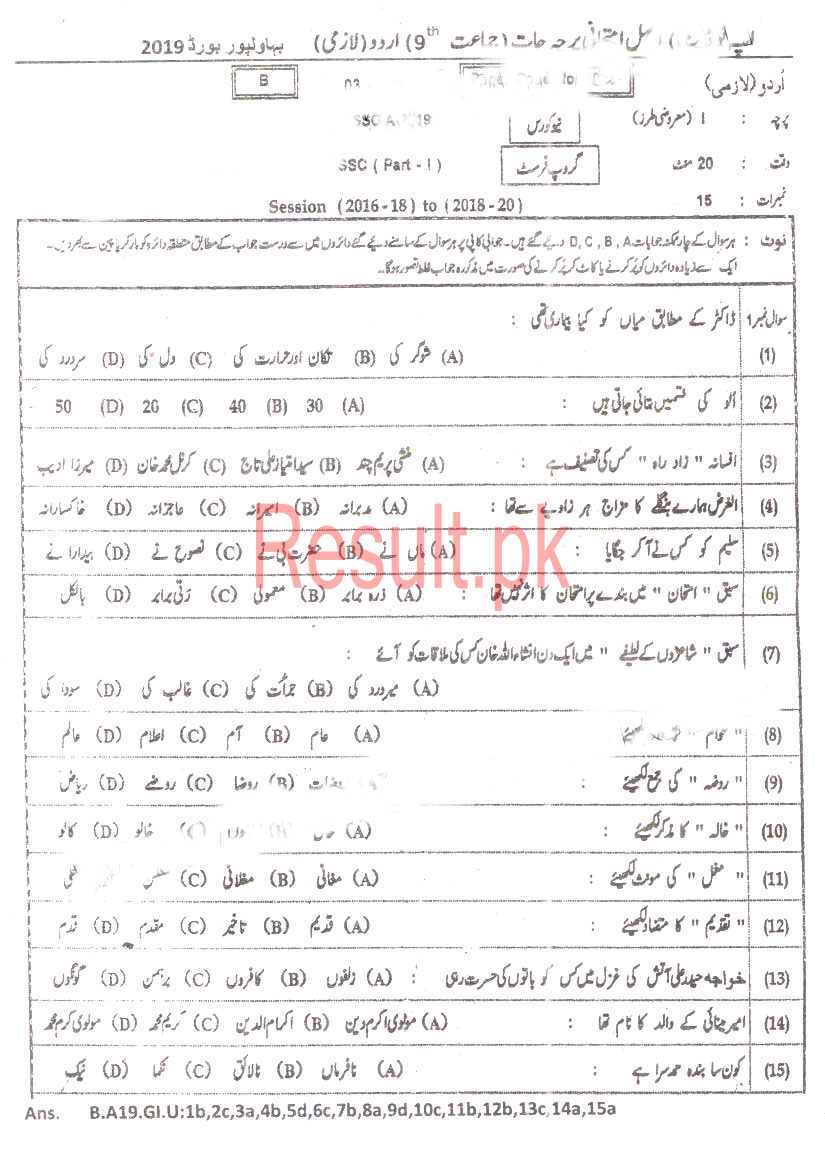 امتحانی پرچہ جات (جماعت 9th) اردو (لازمی) بہاولپور بورڈ 2019
اُردو (لازمی) 03 B
پرچہ : I (معروضی طرز) نیو کورس SSC A 2019
وقت : 20 منٹ گروپ فرسٹ SSC ( Part - I )
نمبرات : 15 Session (2016-18) to (2018-20)
نوٹ : ہر سوال کے چار ممکنہ جوابات D, C, B, A دیئے گئے ہیں۔ جوابی کاپی پر ہر سوال کے سامنے دیئے گئے دائروں میں سے درست جواب کے مطابق متعلقہ دائرہ کو مارکر یا پین سے بھر دیں۔
ایک سے زیادہ دائروں کو پُر کرنے یا کاٹ کر پُر کرنے کی صورت میں مذکورہ جواب غلط تصور ہوگا۔
سوال نمبر 1 ڈاکٹر کے مطابق میاں کو کیا بیماری تھی :
(1) (A) شوگر کی (B) تکان اور حرارت کی (C) دل کی (D) سر درد کی
(2) اُلو کی قسمیں بتائی جاتی ہیں : (A) 30 (B) 40 (C) 20 (D) 50
(3) افسانہ " زاد راہ " کس کی تصنیف ہے : (A) منشی پریم چند (B) سید امتیاز علی تاج (C) کرنل محمد خان (D) میرزا ادیب
(4) الغرض ہمارے بنگلے کا مزاج ہر زاویے سے تھا : (A) مدبرانہ (B) امیرانہ (C) عاجزانہ (D) خاکسارانہ
(5) سلیم کو کس نے آ کر جگایا : (A) ماں نے (B) حضرت بی نے (C) نصوح نے (D) بیدارا نے
(6) سبق " امتحان " میں بندے پر امتحان کا اثر نہیں تھا : (A) ذرہ برابر (B) معمولی (C) رتی برابر (D) بالکل
(7) سبق " شاعروں کے لطیفے " میں ایک دن انشاء اللہ خان کس کی ملاقات کو آئے :
(A) میر درد کی (B) جرأت کی (C) غالب کی (D) سودا کی
(8) (A) عام (B) آم (C) اعلام (D) عالم
(9) " روضہ " کی جمع لکھیئے : (B) روضا (C) روضے (D) ریاض
(10) " خالہ " کا مذکر لکھیئے : (A) (B) (C) خالو (D) کالو
(11) " مغل " کی مونث لکھیئے : (A) مغانی (B) مغلانی (C)
(12) " تقدیم " کا متضاد لکھیئے : (A) قدیم (B) تاخیر (C) مقدم (D) قدم
(13) خواجہ حیدر علی آتش کی غزل میں کس کو باتوں کی حسرت رہی : (A) زلفوں (B) کافروں (C) برہمن (D) گونگوں
(14) امیر مینائی کے والد کا نام تھا : (A) مولوی اکرم دین (B) اکرام الدین (C) کریم محمد (D) مولوی کرم محمد
(15) کون سا بندہ حمد سرا ہے : (A) نافرماں (B) نالائق (C) نکما (D) نیک
Ans. B.A19.GI.U:1b,2c,3a,4b,5d,6c,7b,8a,9d,10c,11b,12b,13c,14a,15a
Result.pk